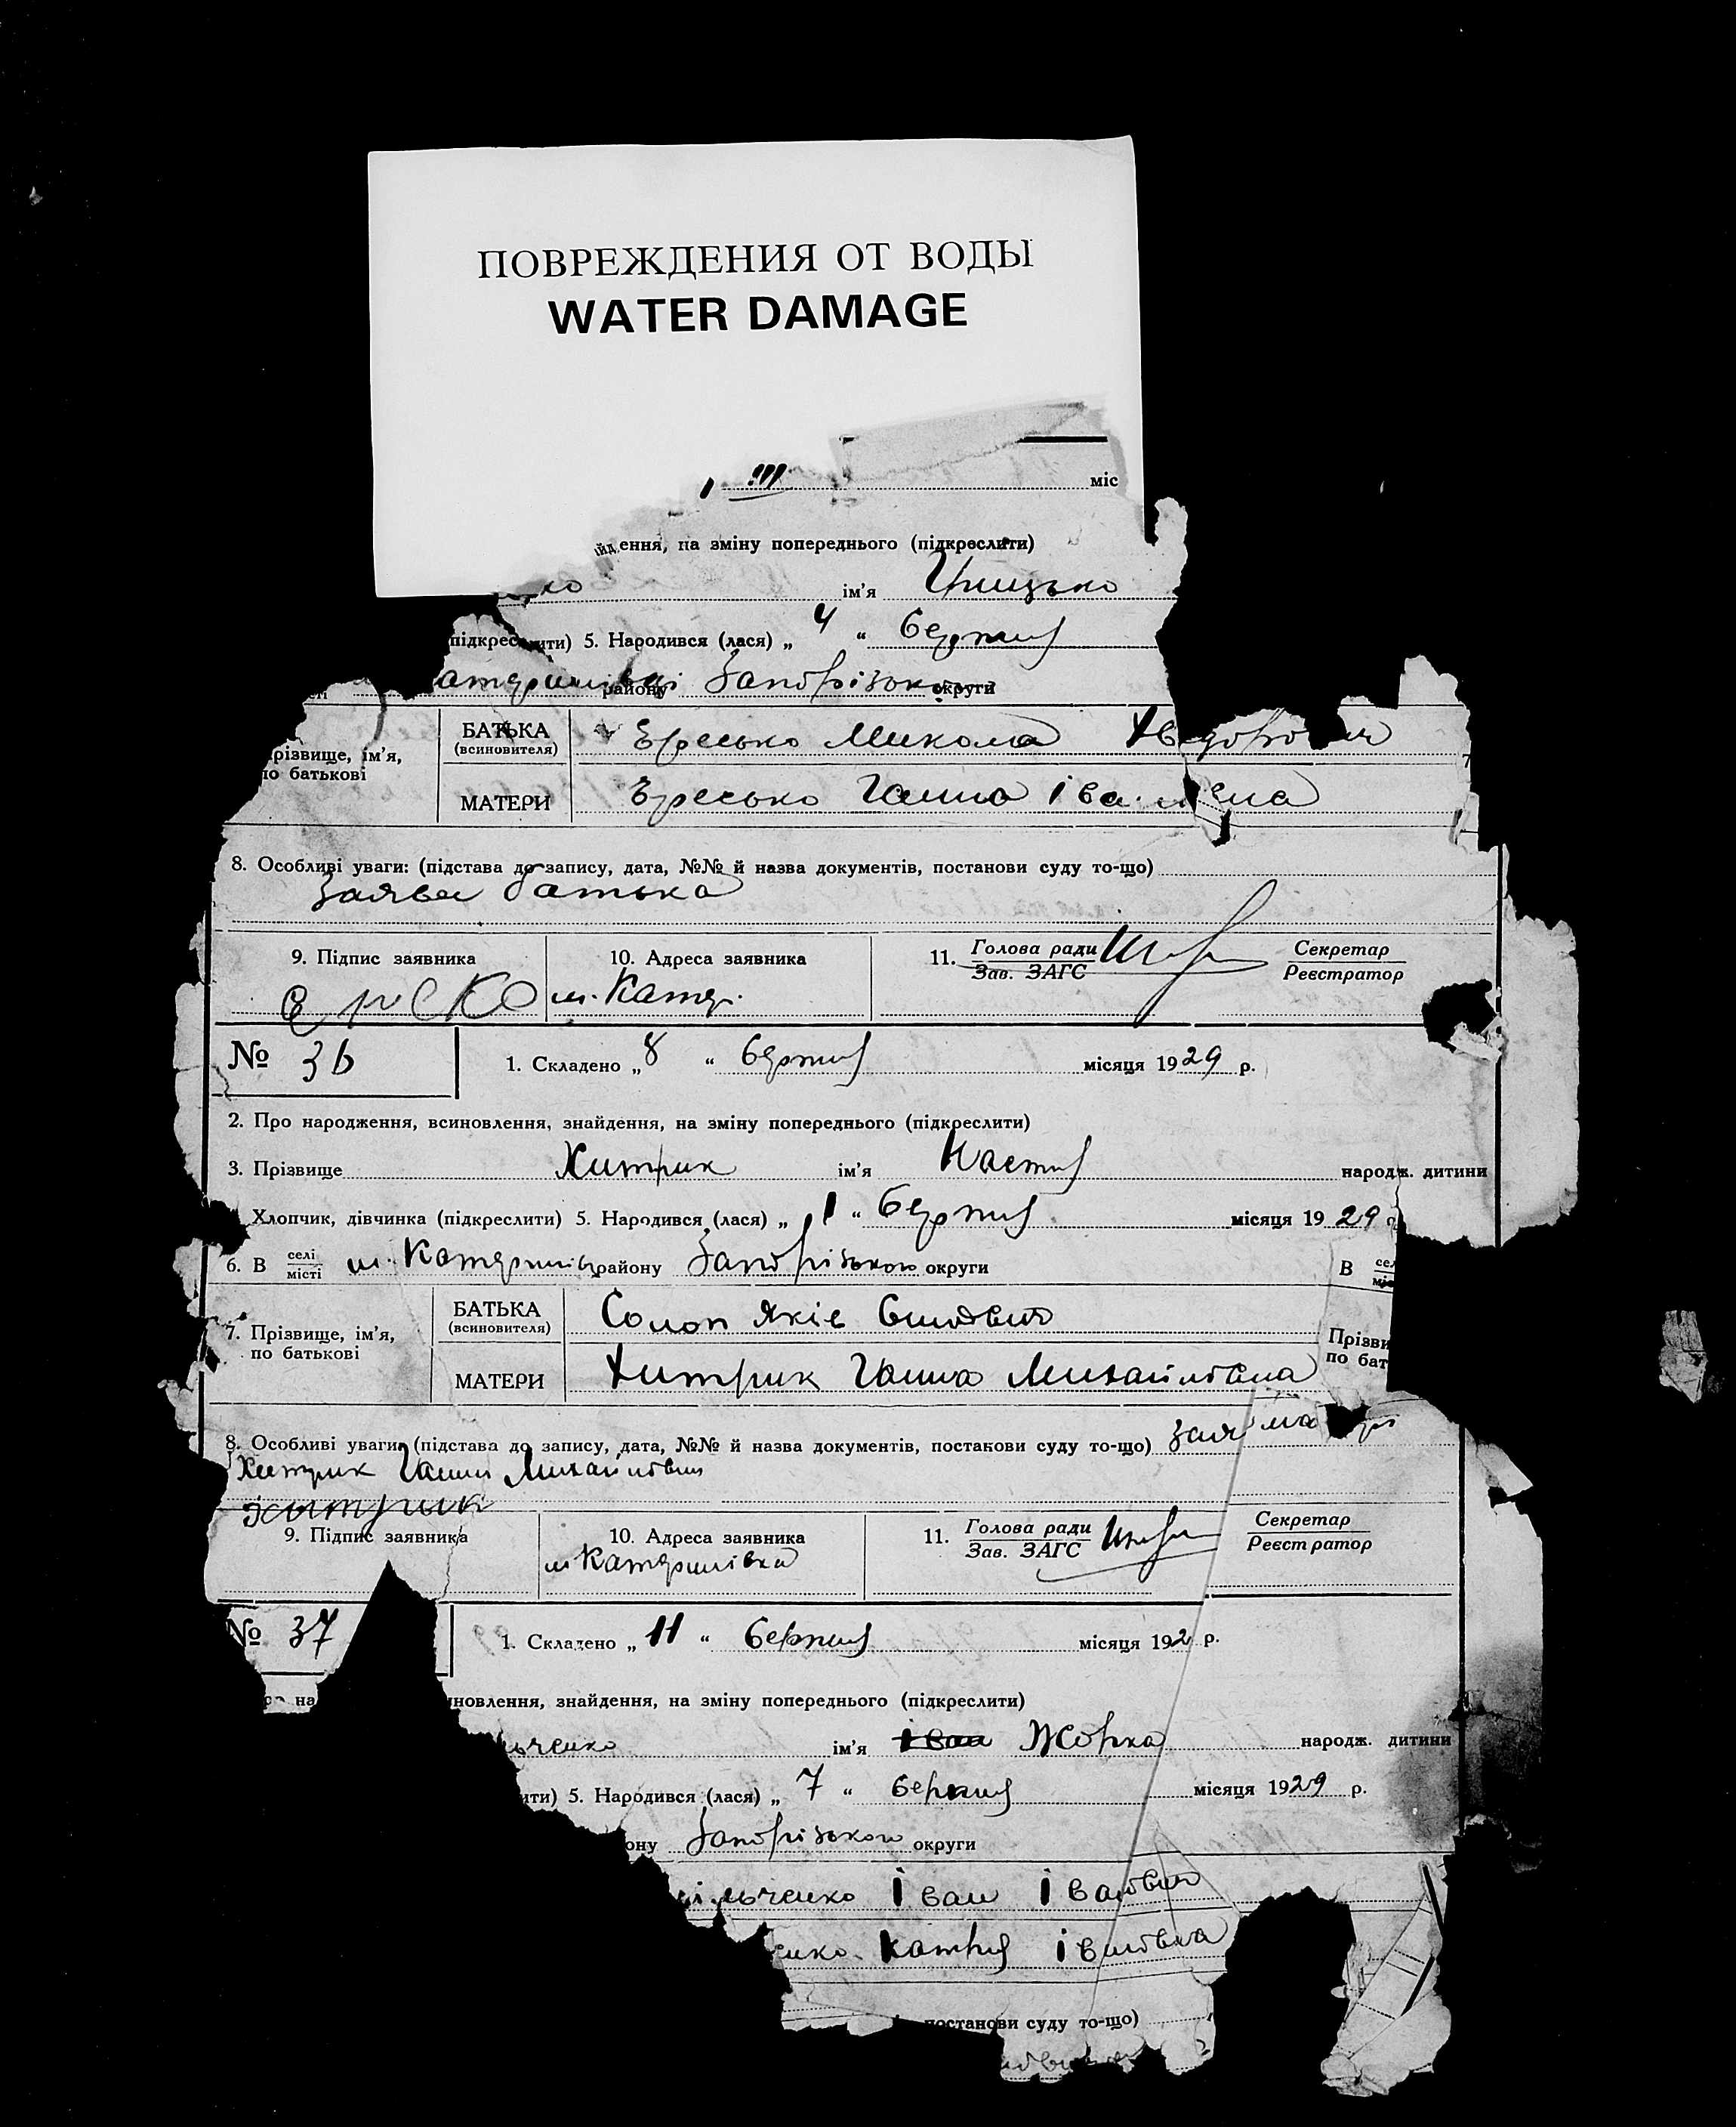 ПОВРЕЖДЕНИЯ ОТ ВОДЫ
WATER DAMAGE
міс
ення, на зміну попереднього (підкреслити)
ко ім'я Грицько
підкреслити) 5. Народився (лася) „ 4 “ березня
атеринівці району Запорізької округи
різвище, ім'я, по батькові
БАТЬКА (всиновителя) Єресько Микола Хведорович
МАТЕРИ Єресько Ганна Івановна
8. Особливі уваги: (підстава до запису, дата, №№ й назва документів, постанови суду то-що)
Заява батька
9. Підпис заявника 10. Адреса заявника 11. Голова ради Зав. ЗАГС Секретар Реєстратор
м. Катер.
№ 36 1. Складено „ 8 “ березня місяця 1929 р.
2. Про народження, всиновлення, знайдення, на зміну попереднього (підкреслити)
3. Прізвище Хитрик ім'я Настя народж. дитини
Хлопчик, дівчинка (підкреслити) 5. Народився (лася) „ 1 “ березня місяця 1929 р
6. В селі місті м. Катеринівц району Запорізького округи В сел міс
7. Прізвище, ім'я, по батькові Прізви по бат
БАТЬКА (всиновителя) Солоп Яків
МАТЕРИ Хитрик Ганна Михайловна
8. Особливі уваги: (підстава до запису, дата, №№ й назва документів, постанови суду то-що) зая
Хитрик Ганни Михайловни
хитрик
9. Підпис заявника 10. Адреса заявника 11. Голова ради Зав. ЗАГС Секретар Реєстратор
м Катеринівка
№ 37 1. Складено „ 11 “ березня місяця 192 р.
на новлення, знайдення, на зміну попереднього (підкреслити)
ьченко ім'я Іван Жорка народж. дитини
ити) 5. Народився (лася) „ 7 “ березня місяця 1929 р.
ону Запорізького округи
ільченко Іван Іванович
енко Катря Івановна
постанови суду то-що)